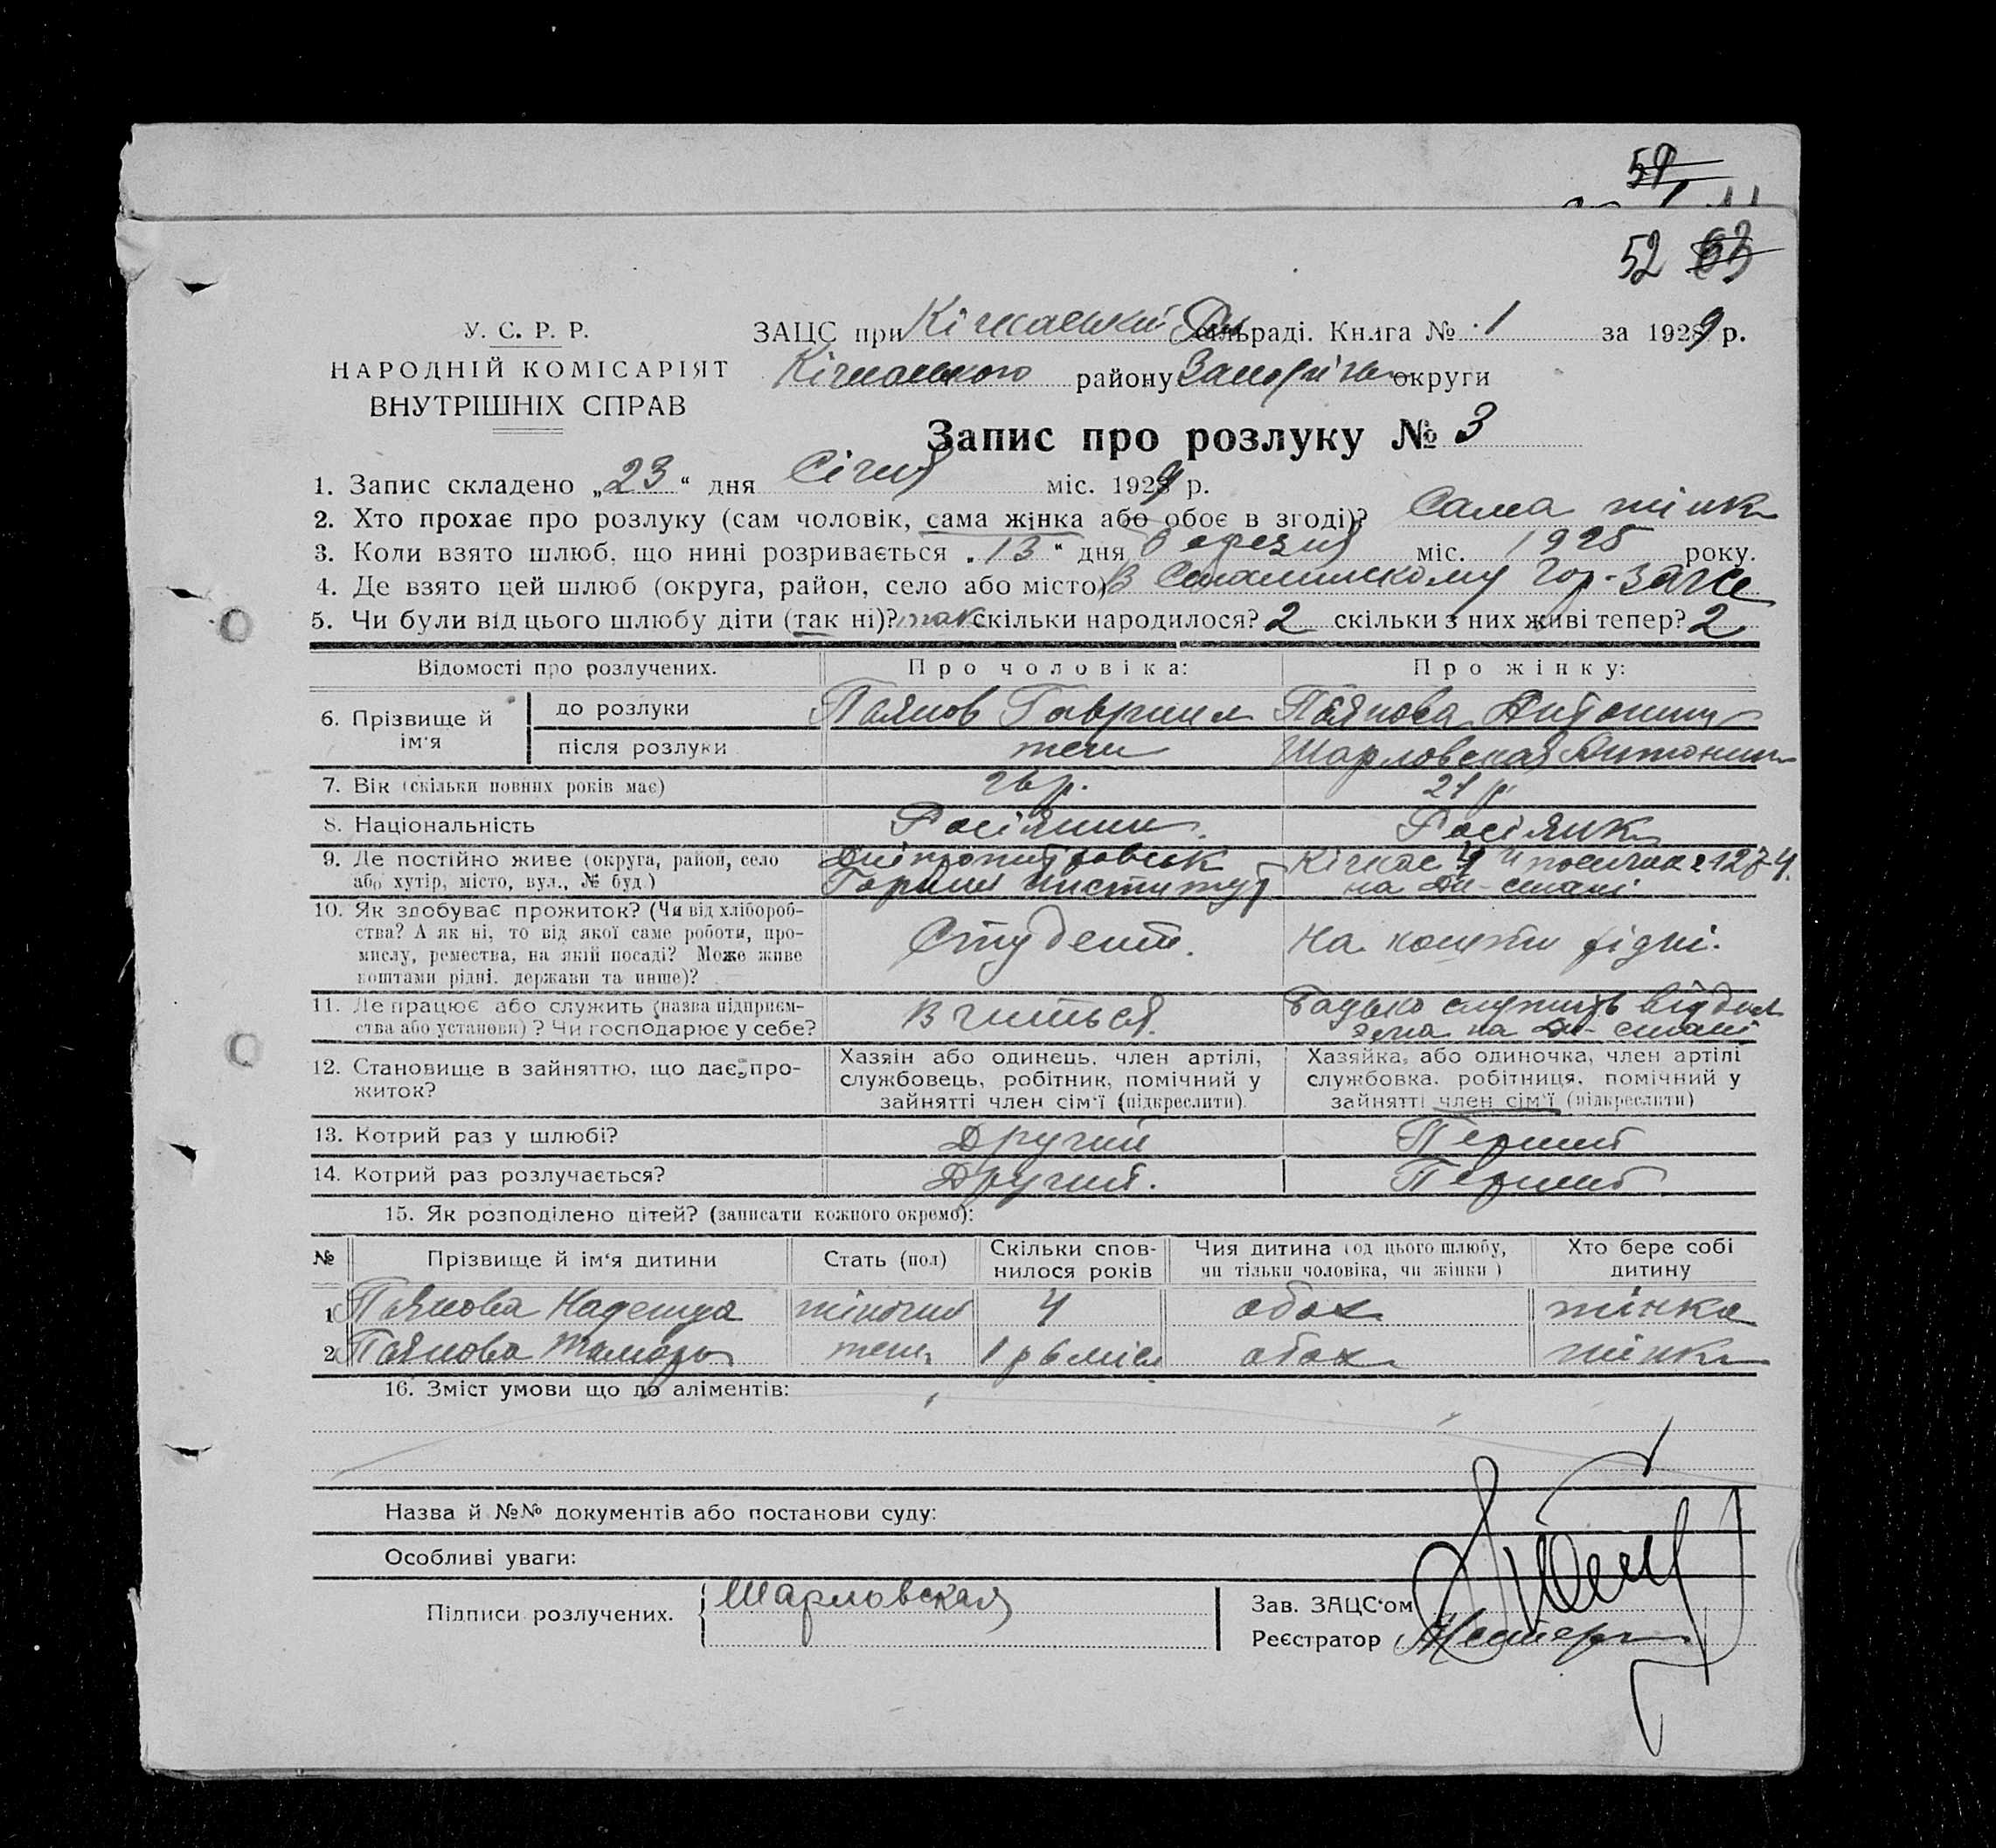 59
52 63
У. С. Р. Р.
НАРОДНІЙ КОМІСАРІЯТ
ВНУТРІШНІХ СПРАВ
ЗАЦС при Кічкаській сільраді. Книга № 1 за 1929 р.
Кічкаського району Запоріжс округи
Запис про розлуку № 3
1. Запис складено „23“ дня Січня міс. 1929 р.
2. Хто прохає про розлуку (сам чоловік, сама жінка або обоє в згоді)? Сама жінка
3. Коли взято шлюб, що нині розривається „13“ дня Березня міс. 1925 року.
4. Де взято цей шлюб (округа, район, село або місто) В Сталинскому Гор-загсе
5. Чи були від цього шлюбу діти (так ні)? так скільки народилося? 2 скільки з них живі тепер? 2
Відомості про розлучених. Про чоловіка: Про жінку:
6. Прізвище й ім'я до розлуки Паянов Гавриил Паянова Антонина
після розлуки теж Шарловская Антонина
7. Вік (скільки повних років має) 26 р. 21 р.
8. Національність Росіянин. Росіянка
9. Де постійно живе (округа, район, село або хутір, місто, вул., № буд.) Дніпропетровськ Горный Институт Кічкас посилок 127 на Дн-стані
10. Як здобуває прожиток? (Чи від хлібороб-
ства? А як ні, то від якої саме роботи, про-
мислу, ремества, на якій посаді? Може живе
коштами рідні, держави та инше)? Студент. На кошти рідні.
11. Де працює або служить (назва підприєм-
ства або установи)? Чи господарює у себе? Вчиться. Батько служить на Дн-стані
12. Становище в зайняттю, що дає про-
житок?
Хазяін або одинець, член артілі,
службовець, робітник, помічний у
зайнятті член сім'ї (підкреслити).
Хазяйка, або одиночка, член артілі
службовка, робітниця, помічний у
зайнятті член сім'ї (підкреслити)
13. Котрий раз у шлюбі? Другий Перший
14. Котрий раз розлучається? Другий. Перший
15. Як розподілено дітей? (записати кожного окремо):
№ Прізвище й ім'я дитини Стать (пол) Скільки спов-
нилося років Чия дитина (од цього шлюбу,
чи тільки чоловіка, чи жінки) Хто бере собі
дитину
1 Паянова Надежда жіночий 4 обох жінка
2 Паянова Тамара жін. 1 р 6 міся обох жінка
16. Зміст умови що до аліментів:
Назва й №№ документів або постанови суду:
Особливі уваги:
Підписи розлучених. Шарловская
Зав. ЗАЦС'ом
Реєстратор